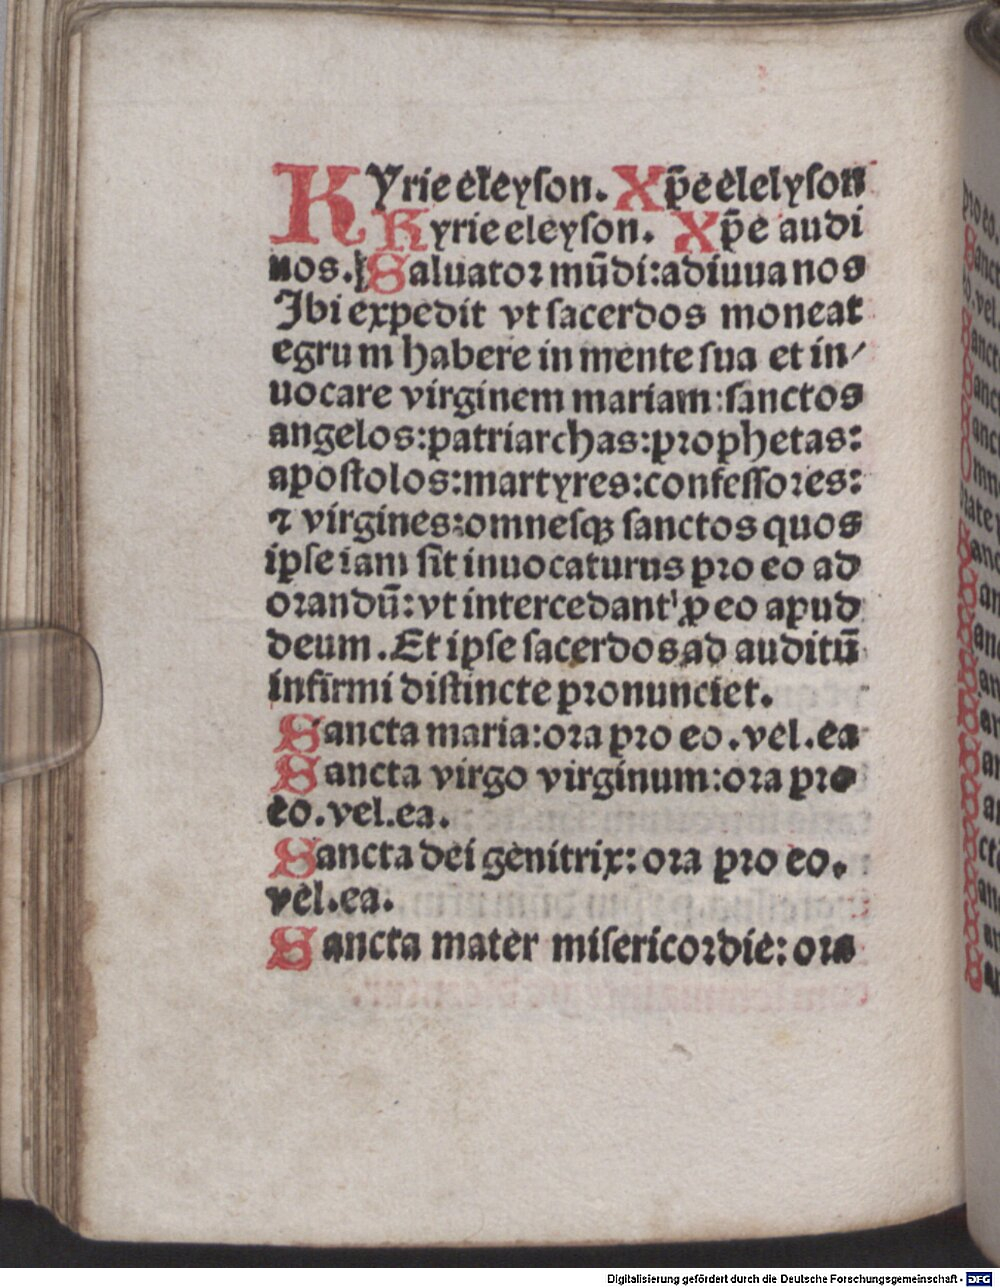 Kyrie eleyson. Xp̄e elelyson
Kyrie eleyson. Xp̄e audi
nos. Saluator mūdi: adiuua nos
Ibi expedit vt sacerdos moneat
egrum habere in mente sua et in/
uocare virginem mariam: sanctos
angelos: patriarchas: prophetas:
apostolos: martyres: confessores:
⁊ virgines: omnesqꝫ sanctos quos
ipse iam sit inuocaturus pro eo ad
orandū: vt intercedant ꝓ eo apud
deum. Et ipse sacerdos ad auditū
infirmi distincte pronunciet.
Sancta maria: ora pro eo. vel. ea
Sancta virgo virginum: ora pro
eo. vel. ea.
Sancta dei genitrix: ora pro eo.
vel. ea.
Sancta mater misericordie: ora
Digitalisierung gefördert durch die Deutsche Forschungsgemeinschaft - DFG